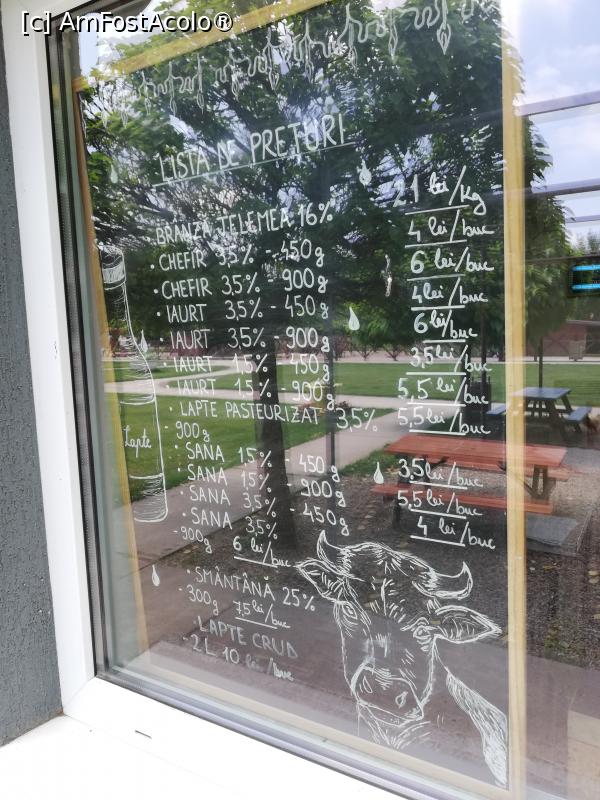 [c] AmFostAcolo®
LISTA DE PREȚURI
· BRANZA TELEMEA 16% 21 lei/Kg
· CHEFIR 3,5% - 450g 4 lei/buc
· CHEFIR 3,5% - 900g 6 lei/buc
· IAURT 3,5% - 450g 4 lei/buc
· IAURT 3,5% - 900g 6 lei/buc
· IAURT 1,5% - 450g 3,5 lei/buc
· IAURT 1,5% - 900g 5,5 lei/buc
· LAPTE PASTEURIZAT 3,5% 5,5 lei/buc
- 900g
Lapte
· SANA 1,5% - 450g 3,5 lei/buc
· SANA 1,5% - 900g 5,5 lei/buc
· SANA 3,5% - 450g 4 lei/buc
· SANA 3,5%
- 900g 6 lei/buc
· SMÂNTÂNĂ 25%
- 300g 7,5 lei/buc
· LAPTE CRUD
- 2L 10 lei/buc